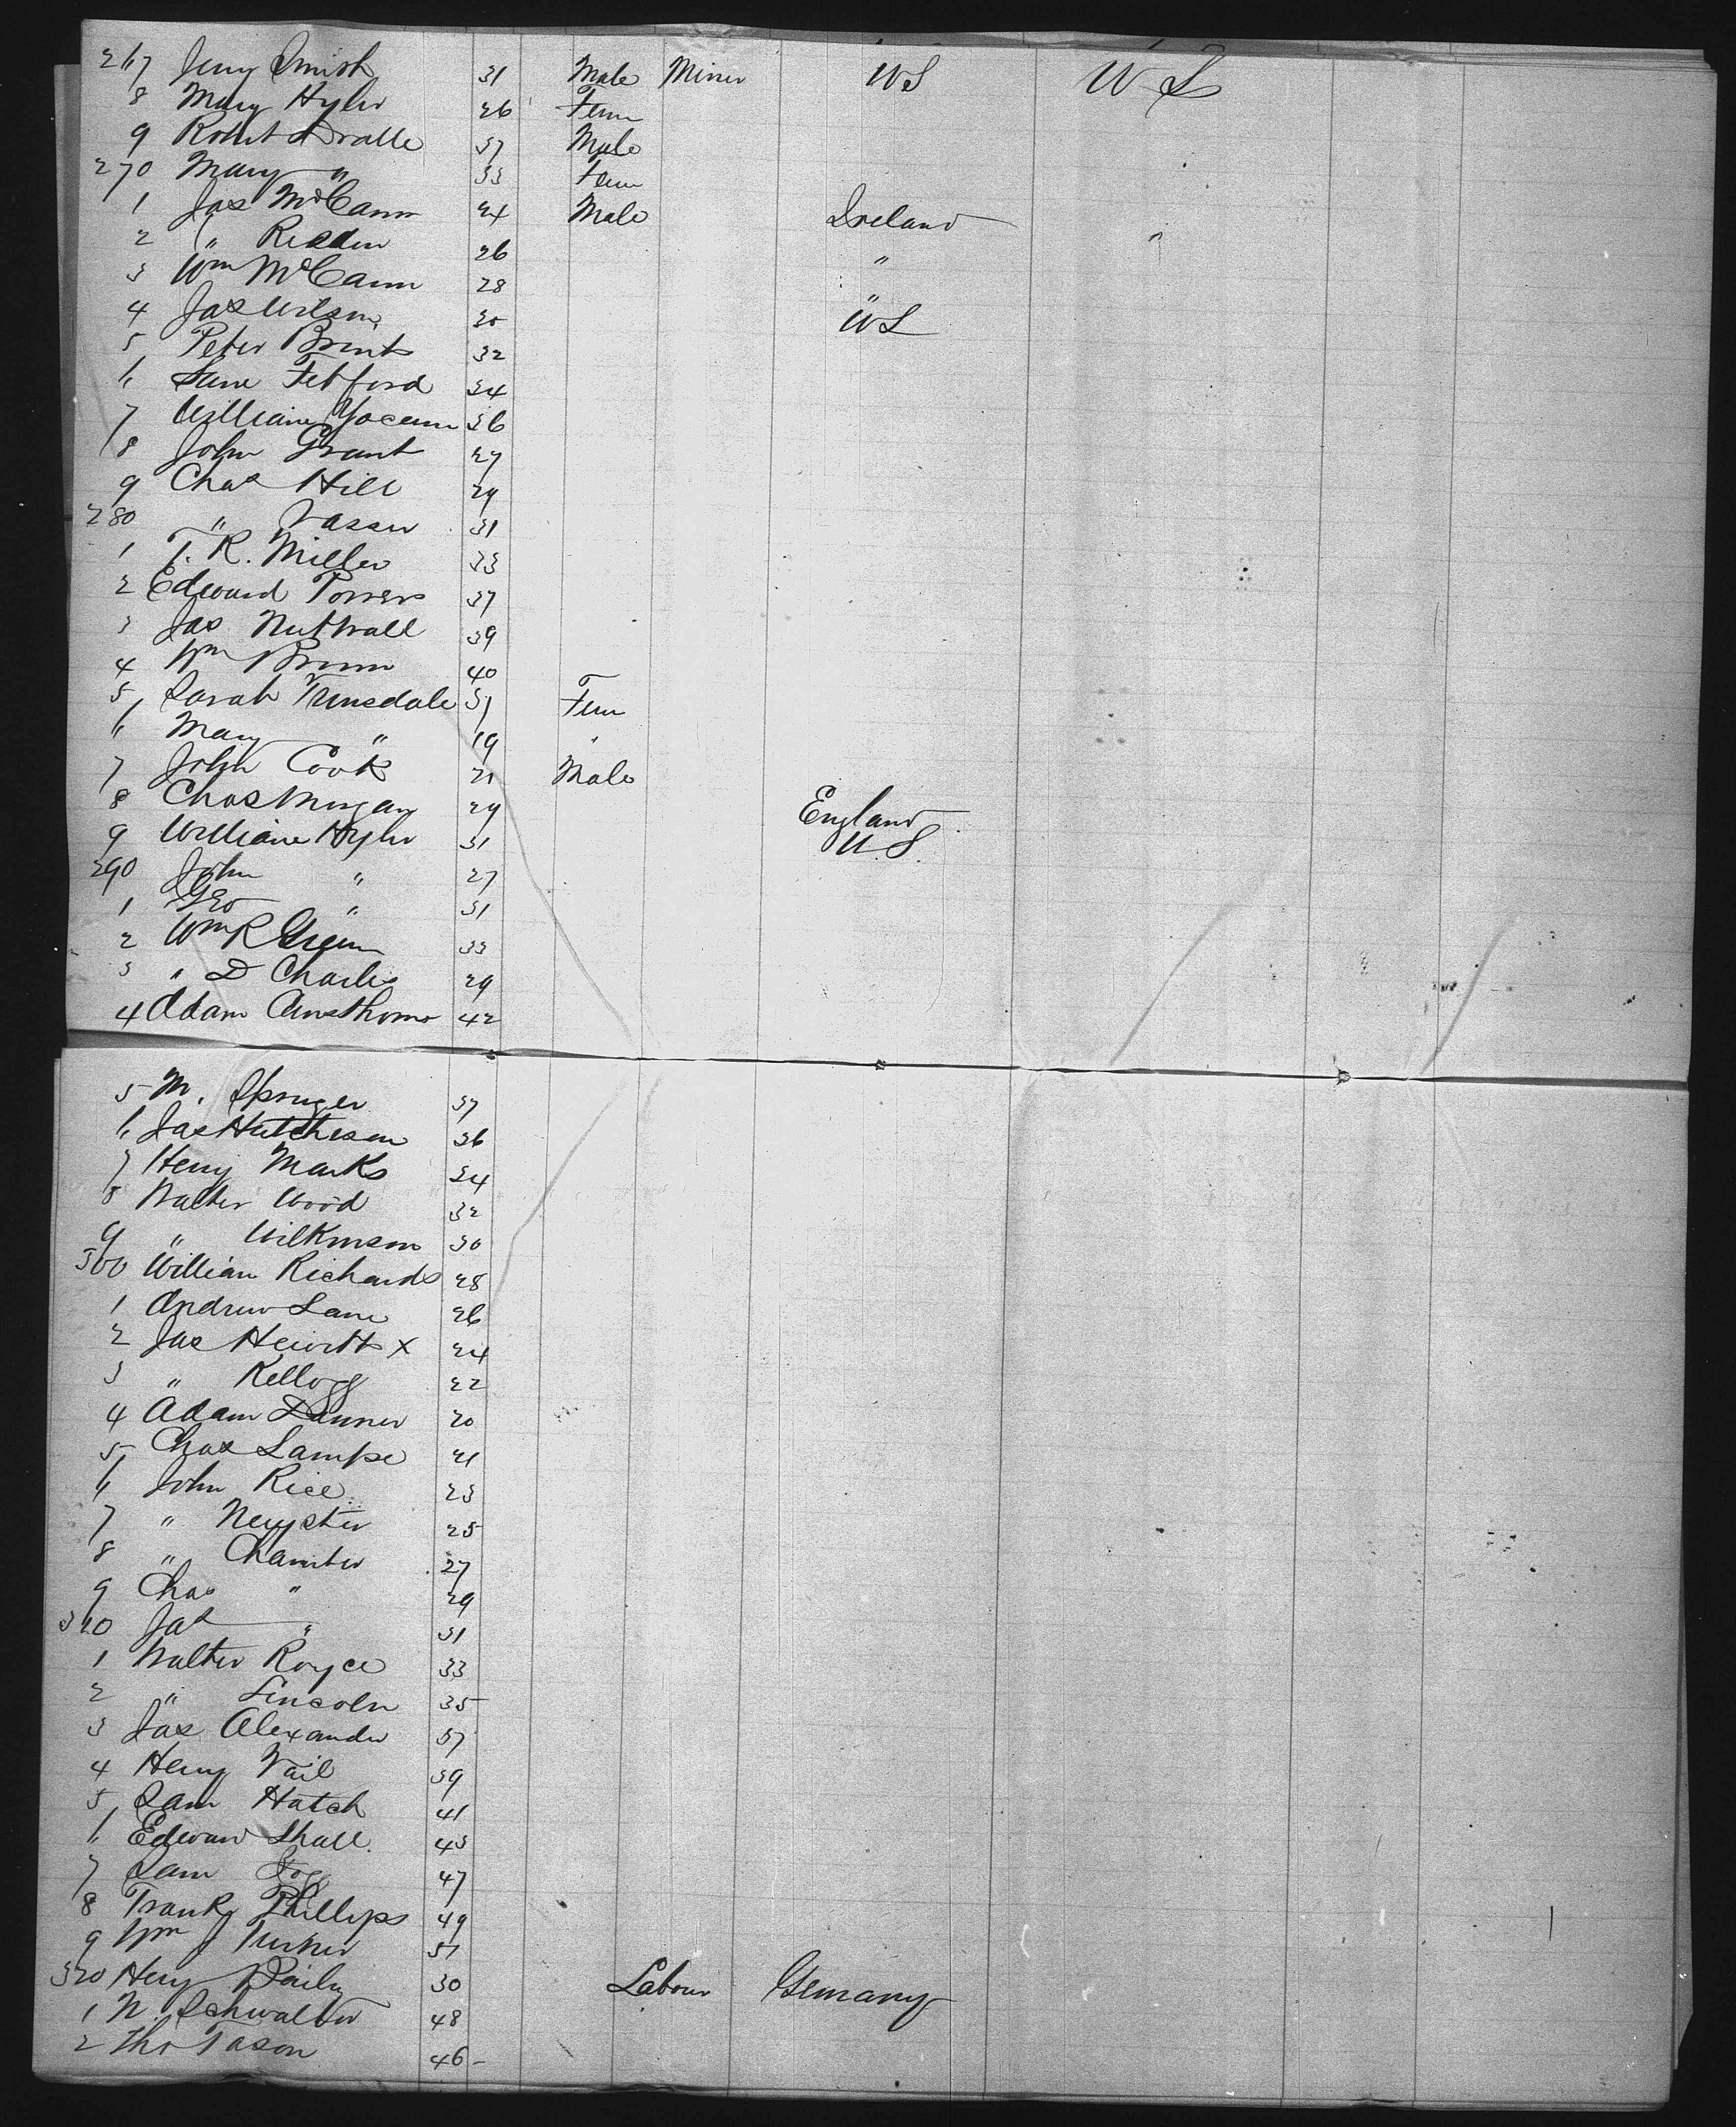 267 Jerry Smith 31 Male Miner US US
8 Mary Hyler 26 Fem
9 Robert Dralle 37 Male
270 Mary " 33 Fem
1 Jas McCann 24 Male Ireland
2 " Redden 26 "
3 Wm McCann 28 "
4 Jas Wilson 30 US
5 Peter Brents 32
6 Fetford 34
7 William Yocum 36
8 John Grant 27
9 Chas Hill 29
280 " Vasser 31
1 T. R. Miller 33
2 Edward Powers 37
3 Jas Nuthall 39
4 Wm Brown 40
5 Sarah Trusdale 51 Fem
6 Mary " 19 "
7 John Cook 21 Male
8 Chas Morgan 29 England
9 William Hyler 31 U.S.
290 John " 27
1 Geo " 31
2 Wm R Green 33
3 " D Charles 29
4 Adam 42
5 M. Springer 37
6 Jas Hutcheson 36
7 Henry Marks 34
8 Walter Wood 32
9 " Wilkinson 30
300 William Richards 28
1 Andrew Lane 26
2 Jas Hewitt x 24
3 " Kellogg 22
4 Adam Danner 20
5 Chas Lampe 21
6 John Rice 23
7 " 25
8 " Chamber 27
9 Chas " 29
310 Jas " 31
1 Walter Royce 33
2 " Lincoln 35
3 Jas Alexander 37
4 Henry Vail 39
5 Sam Hatch 41
6 Edward Shall 43
7 Sam Fogg 47
8 Frank Phillips 49
9 Wm J Turner 51
320 Henry Daily 30 Labour Gemany
1 N. Schwalter 48
2 Tho Tason 46